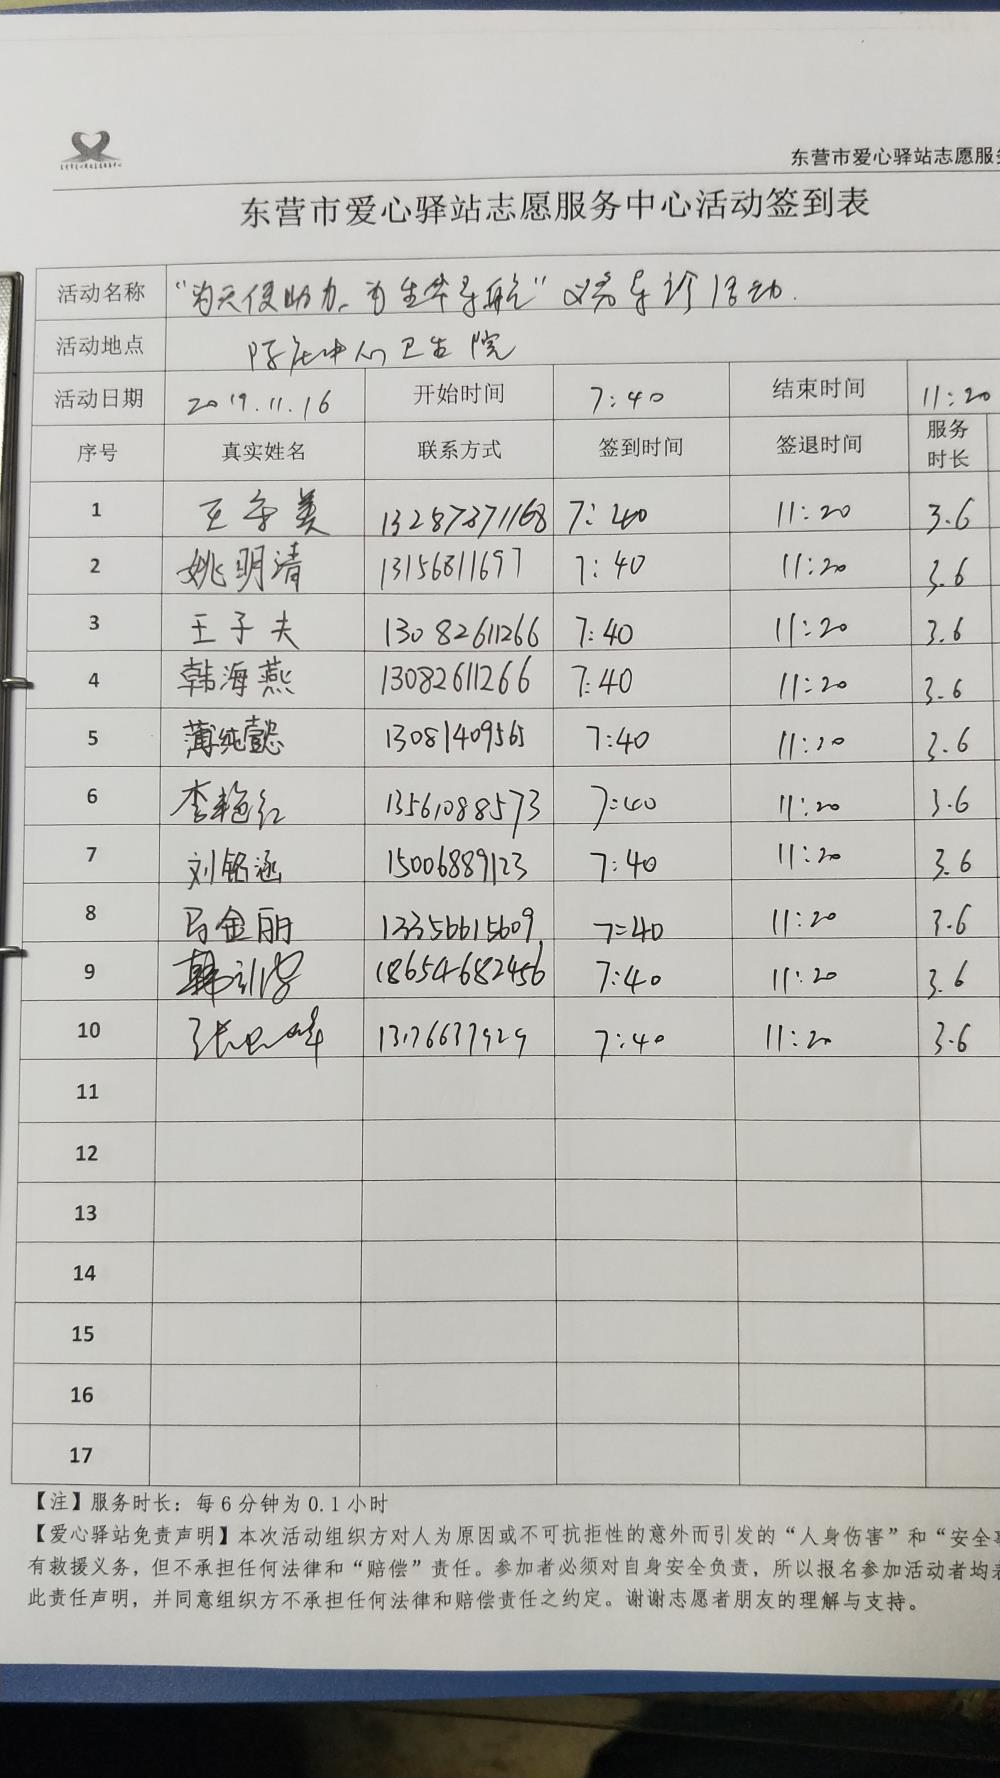 东营市爱心驿站志愿服务
东营市爱心驿站志愿服务中心活动签到表
活动名称 “为天使助力、为生命导航”义务导诊活动.
活动地点 陈庄中心卫生院
活动日期 2019.11.16 开始时间 7:40 结束时间 11:20
序号 真实姓名 联系方式 签到时间 签退时间 服务时长
1 王 美 13287371168 7:40 11:20 3.6
2 姚明清 13156811697 7:40 11:20 3.6
3 王子夫 13082611266 7:40 11:20 3.6
4 韩海燕 13082611266 7:40 11:20 3.6
5 薄纯懿 13081409565 7:40 11:20 3.6
6 李艳红 13561088573 7:40 11:20 3.6
7 刘铭涵 15006889123 7:40 11:20 3.6
8 马金丽 13356615609 7:40 11:20 3.6
9 韩 18654682456 7:40 11:20 3.6
10 张 峰 13176637929 7:40 11:20 3.6
11
12
13
14
15
16
17
【注】服务时长：每6分钟为0.1小时
【爱心驿站免责声明】本次活动组织方对人为原因或不可抗拒性的意外而引发的“人身伤害”和“安全事
有救援义务，但不承担任何法律和“赔偿”责任。参加者必须对自身安全负责，所以报名参加活动者均表
此责任声明，并同意组织方不承担任何法律和赔偿责任之约定。谢谢志愿者朋友的理解与支持。